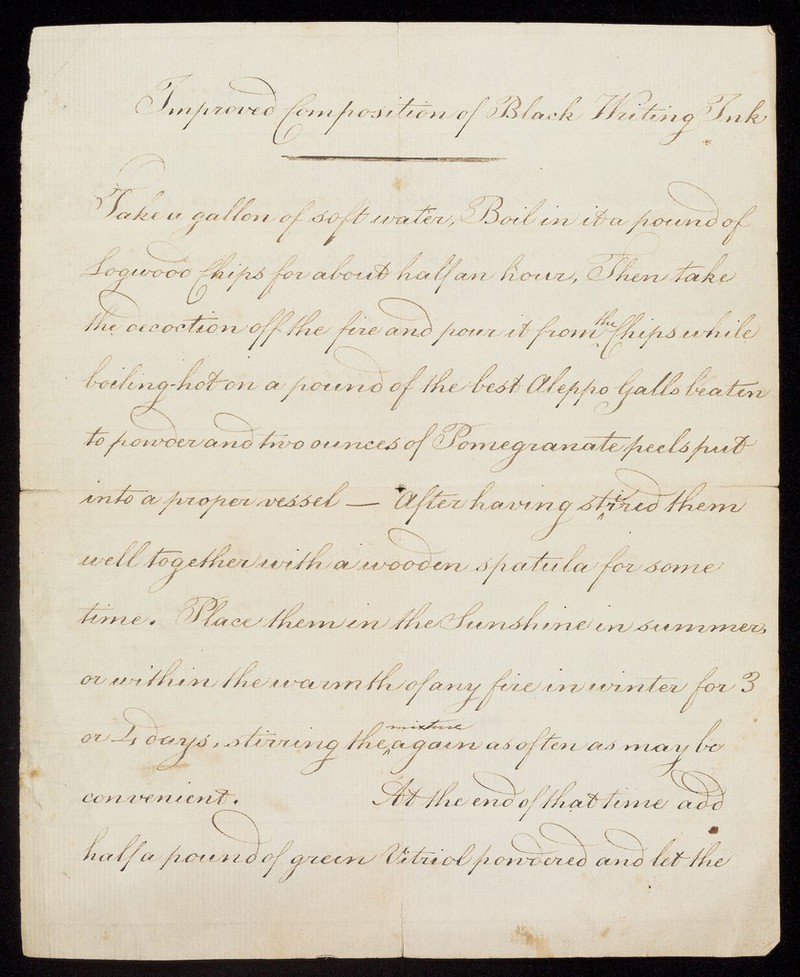 Improved Composition of Black Writing Ink
Take a gallon of soft water, Boil in it a pound of
Logwood Chips for about half an hour, Then take
the decoction off the fire and pour it from the Chips while
boiling-hot on a pound of the best Aleppo Galls beaten
to powder and two ounces of Pomegranate peels put
into a proper vessel — After having stirred them
well together with a wooden spatula for some
time. Place them in the Sunshine in summer,
or within the warmth of any fire in winter for 3
or 4 days, stirring the mixture again as often as may be
convenient. At the end of that time add
half a pound of green Vitriol powdered and let the